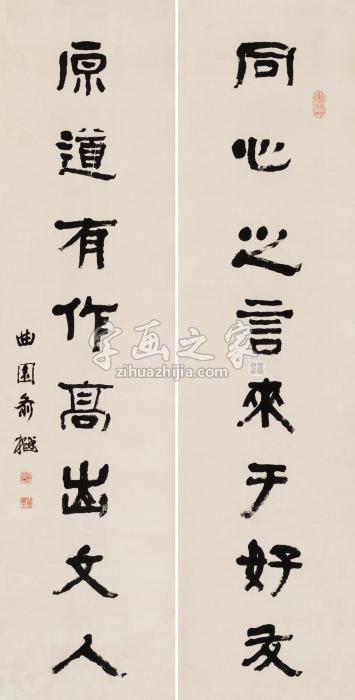 同心之言来于好友
原道有作高出文人
曲园俞樾
字画之家
zihuazhijia.com